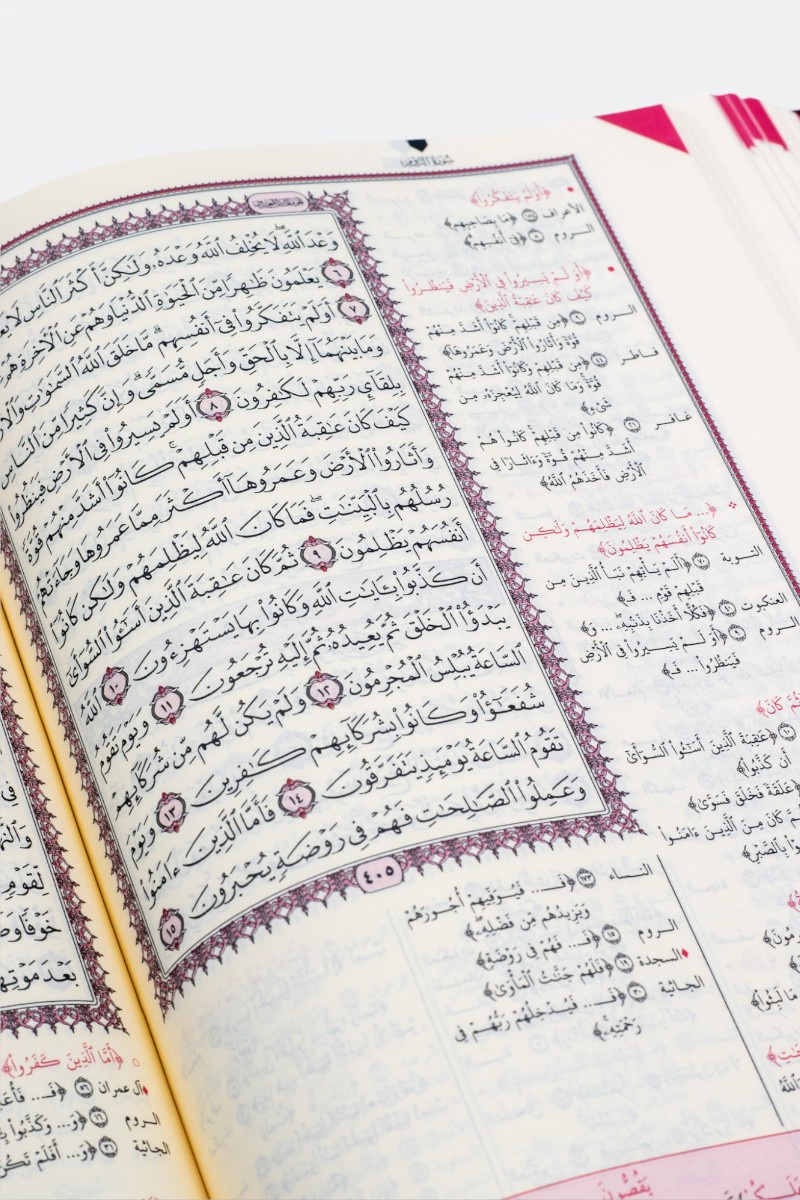 سُورَةُ الرُّومِ
وَعْدَ ٱللَّهِ ۖ لَا يُخْلِفُ ٱللَّهُ وَعْدَهُۥ وَلَٰكِنَّ أَكْثَرَ ٱلنَّاسِ لَا
٦ يَعْلَمُونَ ظَٰهِرًا مِّنَ ٱلْحَيَوٰةِ ٱلدُّنْيَا وَهُمْ عَنِ ٱلْأٓخِرَةِ
٧ أَوَلَمْ يَتَفَكَّرُوا۟ فِىٓ أَنفُسِهِم ۗ مَّا خَلَقَ ٱللَّهُ ٱلسَّمَٰوَٰتِ
وَمَا بَيْنَهُمَآ إِلَّا بِٱلْحَقِّ وَأَجَلٍ مُّسَمًّى ۗ وَإِنَّ كَثِيرًا مِّنَ ٱلنَّاسِ
بِلِقَآئِ رَبِّهِمْ لَكَٰفِرُونَ ٨ أَوَلَمْ يَسِيرُوا۟ فِى ٱلْأَرْضِ فَيَنظُرُوا۟
كَيْفَ كَانَ عَٰقِبَةُ ٱلَّذِينَ مِن قَبْلِهِمْ ۚ كَانُوٓا۟ أَشَدَّ مِنْهُمْ قُوَّةً
وَأَثَارُوا۟ ٱلْأَرْضَ وَعَمَرُوهَآ أَكْثَرَ مِمَّا عَمَرُوهَا وَجَآءَتْهُمْ
رُسُلُهُم بِٱلْبَيِّنَٰتِ ۖ فَمَا كَانَ ٱللَّهُ لِيَظْلِمَهُمْ وَلَٰكِن كَانُوٓا۟
أَنفُسَهُمْ يَظْلِمُونَ ٩ ثُمَّ كَانَ عَٰقِبَةَ ٱلَّذِينَ أَسَٰٓـُٔوا۟ ٱلسُّوٓأَىٰٓ
أَن كَذَّبُوا۟ بِـَٔايَٰتِ ٱللَّهِ وَكَانُوا۟ بِهَا يَسْتَهْزِءُونَ ١٠ ٱللَّهُ
يَبْدَؤُا۟ ٱلْخَلْقَ ثُمَّ يُعِيدُهُۥ ثُمَّ إِلَيْهِ تُرْجَعُونَ ١١ وَيَوْمَ تَقُومُ
ٱلسَّاعَةُ يُبْلِسُ ٱلْمُجْرِمُونَ ١٢ وَلَمْ يَكُن لَّهُم مِّن شُرَكَآئِهِمْ
شُفَعَٰٓؤُا۟ وَكَانُوا۟ بِشُرَكَآئِهِمْ كَٰفِرِينَ ١٣ وَيَوْمَ
تَقُومُ ٱلسَّاعَةُ يَوْمَئِذٍ يَتَفَرَّقُونَ ١٤ فَأَمَّا ٱلَّذِينَ ءَامَنُوا۟
وَعَمِلُوا۟ ٱلصَّٰلِحَٰتِ فَهُمْ فِى رَوْضَةٍ يُحْبَرُونَ ١٥
٤٠٥
﴿أَوَلَمْ يَتَفَكَّرُوا۟﴾
الأعراف ﴿مَا بِصَاحِبِهِم﴾
الروم ٨ ﴿فِىٓ أَنفُسِهِم﴾
﴿أَوَلَمْ يَسِيرُوا۟ فِى ٱلْأَرْضِ فَيَنظُرُوا۟
كَيْفَ كَانَ عَٰقِبَةُ ٱلَّذِينَ﴾
الروم ٩ ﴿مِن قَبْلِهِمْ كَانُوٓا۟ أَشَدَّ مِنْهُمْ
قُوَّةً وَأَثَارُوا۟ ٱلْأَرْضَ وَعَمَرُوهَآ﴾
فاطر ﴿مِن قَبْلِهِمْ وَكَانُوٓا۟ أَشَدَّ مِنْهُمْ
قُوَّةً وَمَا كَانَ ٱللَّهُ لِيُعْجِزَهُۥ مِن
شَىْءٍ﴾
غافر ﴿كَانُوا۟ مِن قَبْلِهِمْ كَانُوا۟ هُمْ
أَشَدَّ مِنْهُمْ قُوَّةً وَءَاثَارًا فِى
ٱلْأَرْضِ فَأَخَذَهُمُ ٱللَّهُ﴾
﴿... مَا كَانَ ٱللَّهُ لِيَظْلِمَهُمْ وَلَٰكِن
كَانُوٓا۟ أَنفُسَهُمْ يَظْلِمُونَ﴾
التوبة ٧٠ ﴿أَلَمْ يَأْتِهِمْ نَبَأُ ٱلَّذِينَ مِن
قَبْلِهِمْ قَوْمِ ... فَـ﴾
العنكبوت ٤٠ ﴿فَكُلًّا أَخَذْنَا بِذَنۢبِهِ ... وَ﴾
الروم ٩ ﴿أَوَلَمْ يَسِيرُوا۟ فِى ٱلْأَرْضِ
فَيَنظُرُوا۟ ... فَـ﴾
﴿ثُمَّ كَانَ﴾
﴿عَٰقِبَةَ ٱلَّذِينَ أَسَٰٓـُٔوا۟ ٱلسُّوٓأَىٰٓ
أَن كَذَّبُوا۟﴾
﴿عَلَقَةً فَخَلَقَ فَسَوَّىٰ﴾
كَانَ مِنَ ٱلَّذِينَ ءَامَنُوا۟
بِٱلصَّبْرِ﴾
النساء ١٧٣ ﴿فَـ... فَيُوَفِّيهِمْ أُجُورَهُمْ
وَيَزِيدُهُم مِّن فَضْلِهِ﴾
الروم ١٥ ﴿فَـ... فَهُمْ فِى رَوْضَةٍ﴾
السجدة ١٩ ﴿فَلَهُمْ جَنَّٰتُ ٱلْمَأْوَىٰ﴾
الجاثية ٣٠ ﴿فَـ... فَيُدْخِلُهُمْ رَبُّهُمْ فِى
رَحْمَتِهِ﴾
لِقَوْمٍ
بَعْدَ مَوْتِهَا
﴿أَمَّا ٱلَّذِينَ كَفَرُوا۟﴾
آل عمران ٥٦
الروم ١٦ ﴿وَ... وَكَذَّبُوا۟
الجاثية ٣١ ﴿وَ... أَفَلَمْ تَكُنْ